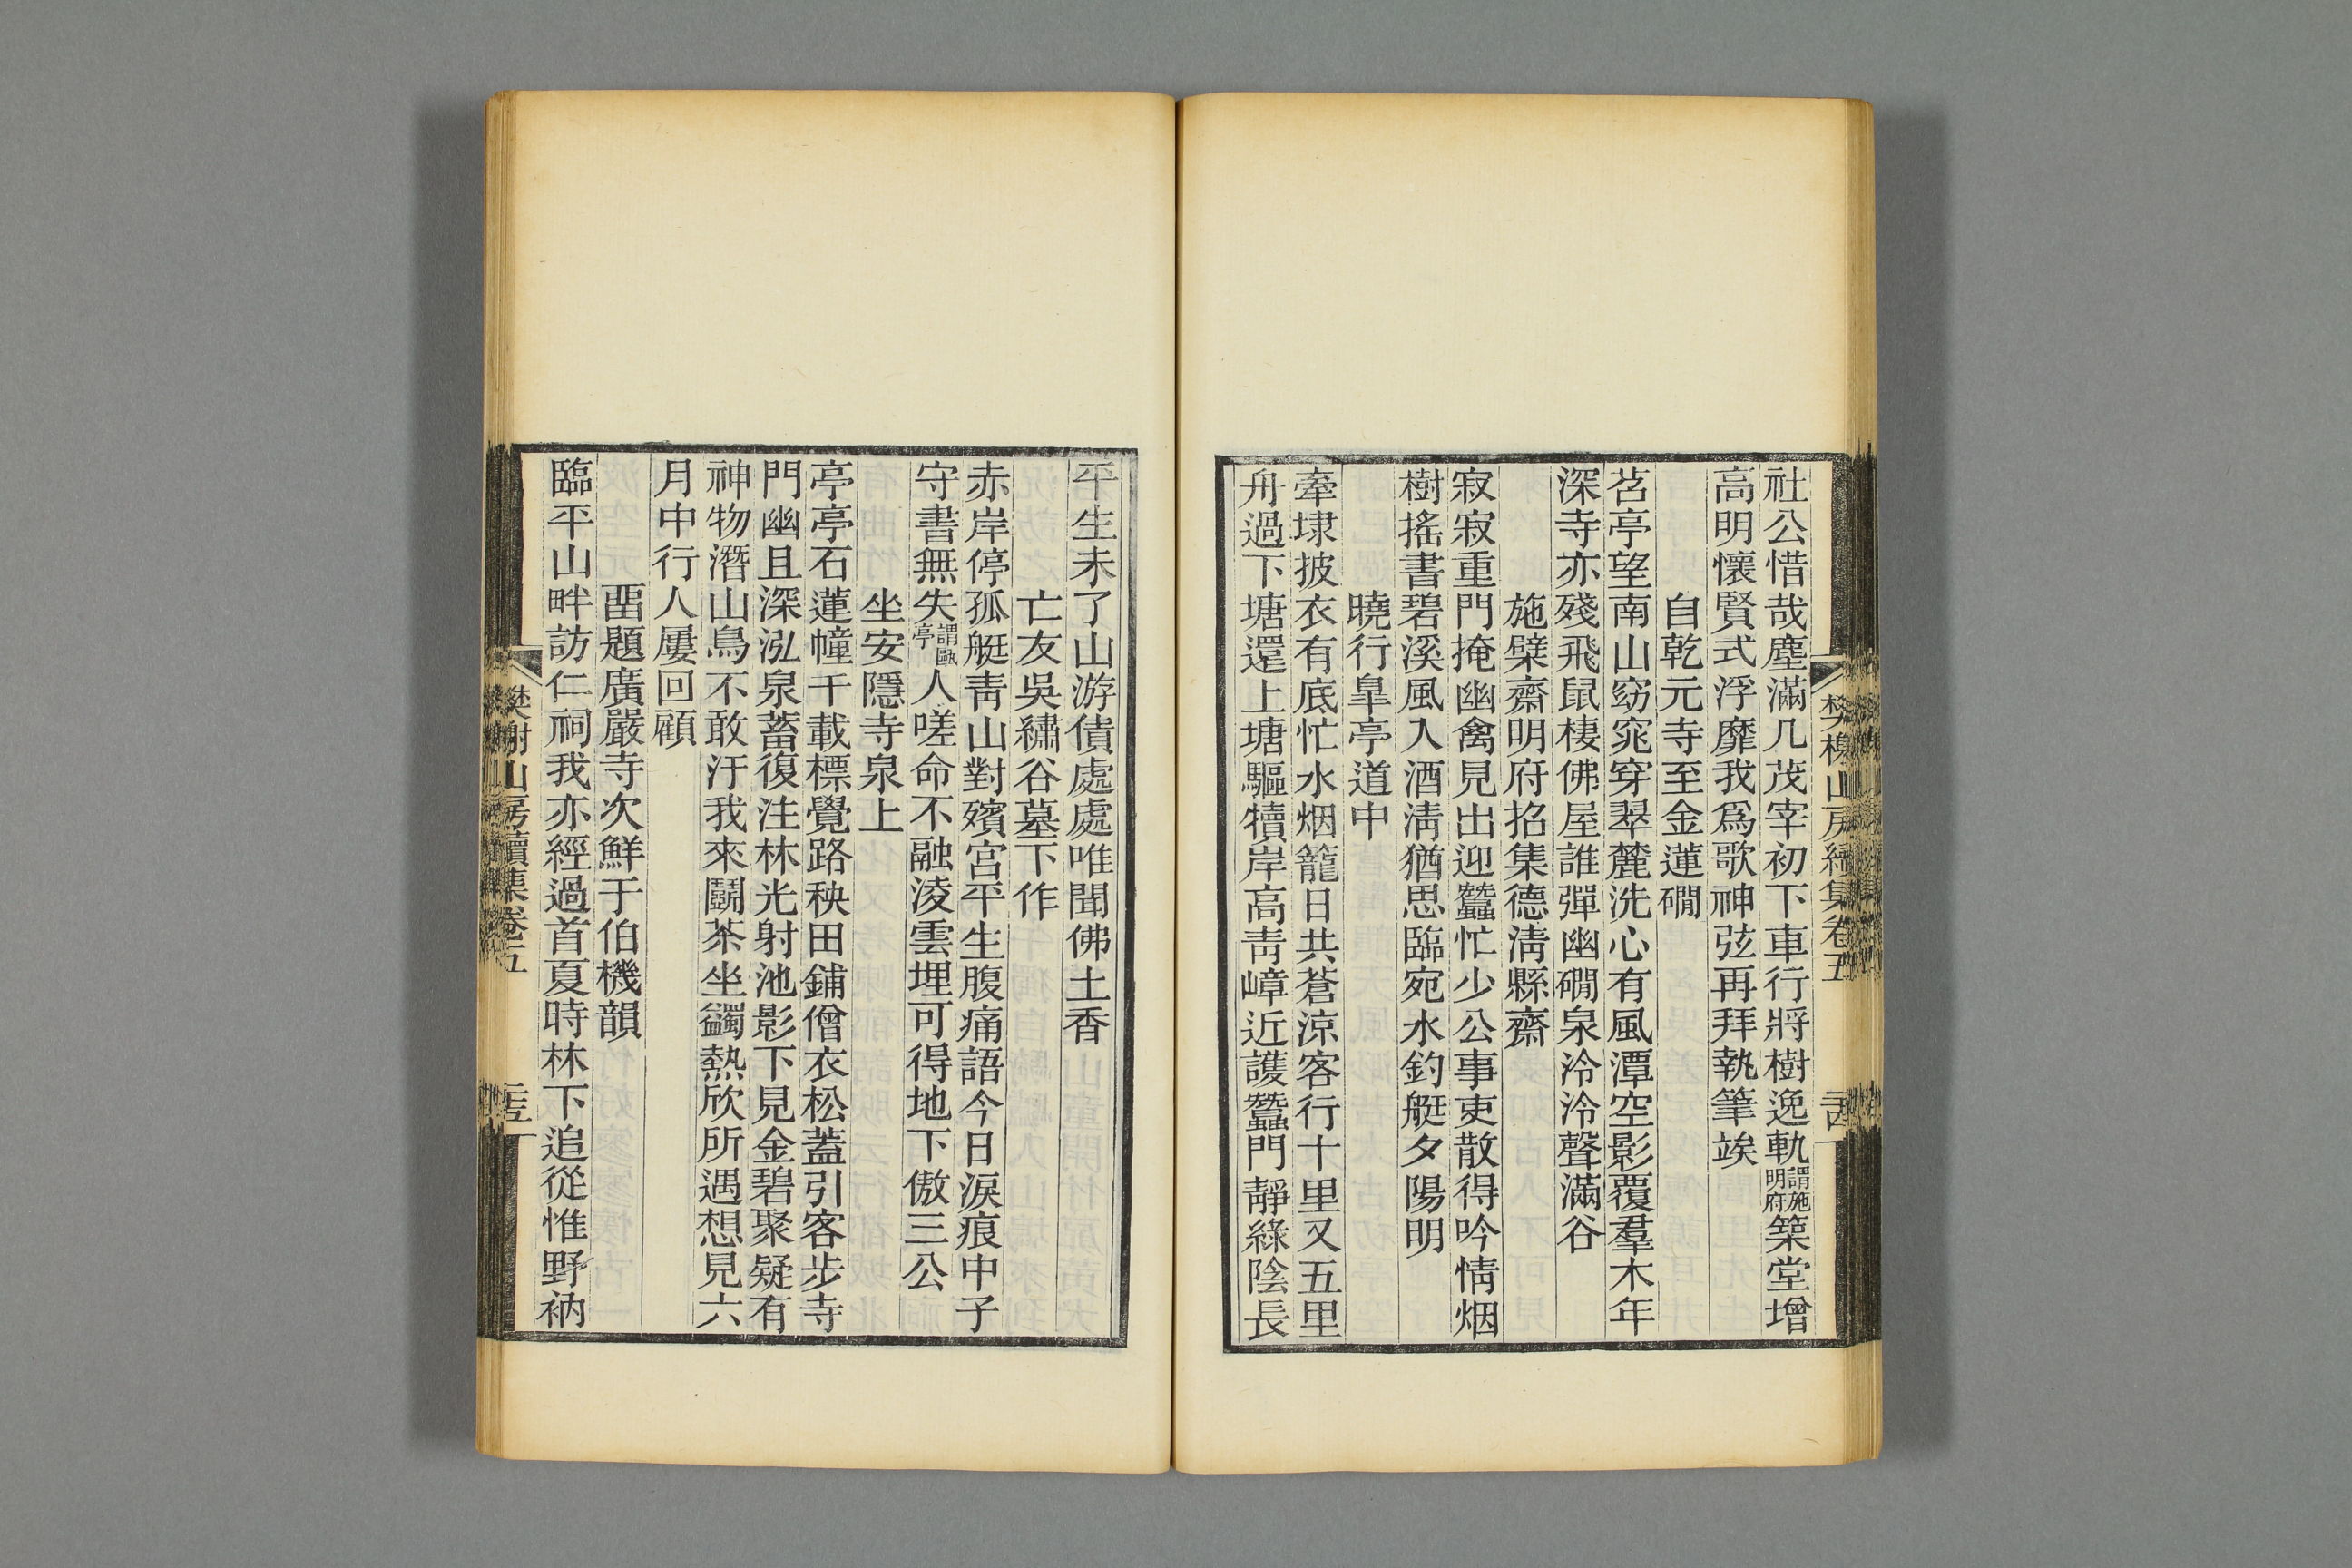 社公惜哉塵滿几茂宰初下車行將樹逸軌謂施明府築堂增
高明懷賢式浮靡我爲歌神弦再拜執筆竢
自乾元寺至金蓮磵
苕亭望南山窈窕穿翠麓洗心有風潭空影覆羣木年
深寺亦殘飛鼠棲佛屋誰彈幽磵泉泠泠聲滿谷
施檗齋明府招集德淸縣齋
寂寂重門掩幽禽見出迎蠶忙少公事吏散得吟情烟
樹搖書碧溪風入酒淸猶思臨宛水釣艇夕陽明
牽埭披衣有底忙水烟籠日共蒼涼客行十里又五里
曉行臯亭道中
舟過下塘還上塘驅犢岸高靑嶂近護蠶門靜綠陰長
樊榭山房續集卷五
平生未了山游債處處唯聞佛土香
亡友吳繡谷墓下作
赤岸停孤艇靑山對殯宮平生腹痛語今日淚痕中子
守書無失謂甌亭人嗟命不融淩雲埋可得地下傲三公
坐安隱寺泉上
亭亭石蓮幢千載標覺路秧田鋪僧衣松蓋引客步寺
門幽且深泓泉蓄復注林光射池影下見金碧聚疑有
神物潛山鳥不敢汙我來鬭茶坐蠲熱欣所遇想見六
月中行人屢回顧
畱題廣嚴寺次鮮于伯機韻
臨平山畔訪仁祠我亦經過首夏時林下追從惟野衲
樊榭山房續集卷五